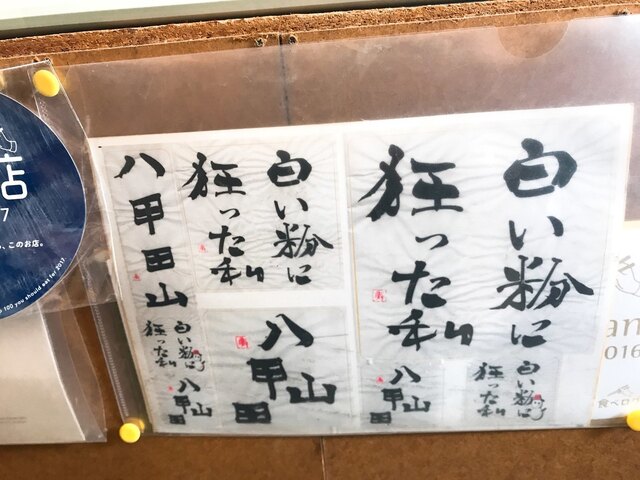 白い粉に
狂った私
白い粉に
狂った私
八甲田山
八甲田山
白い粉に
狂った私
八甲田山
八甲田山
白い粉に
狂った私
店
7
、このお店。
100 you should eat for 2017.
an
016
食べログ